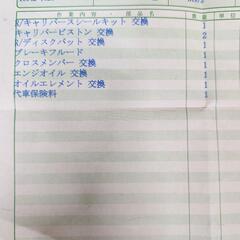 作業内容・部品名 数量 単位
R/キャリパーシールキット 交換 1
キャリパーピストン 交換 2
R/ディスクパット 交換 1
ブレーキフルード 1
クロスメンバー 交換 1
エンジオイル 交換 1
オイルエレメント 交換 1
代車保険料 1